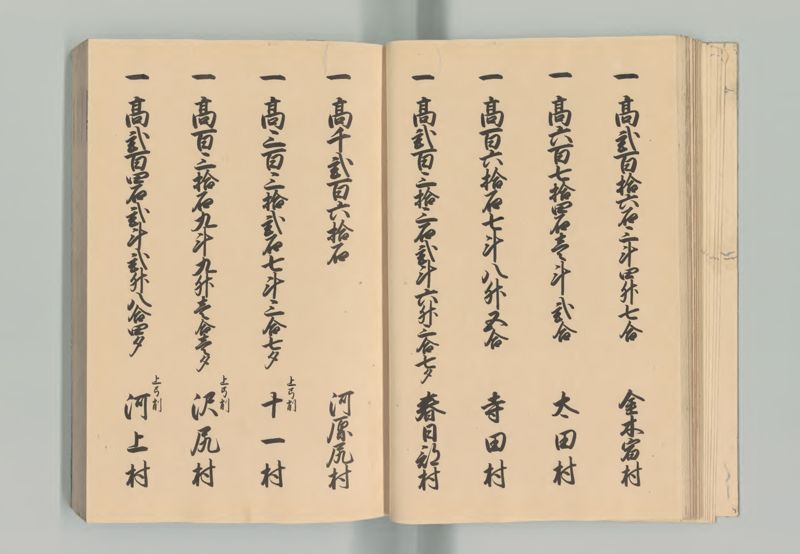 一 高弐百拾六石三斗四升七合 金木宿村
一 高六百七拾四石壱斗弐合 太田村
一 高百六拾石七斗八升五合 寺田村
一 高弐百三拾三石弐斗六升三合七夕 春日部村
一 高千弐百六拾石 河原尻村
一 高三百三拾弐石七斗三合七夕 上弓削 十一村
一 高百三拾石九斗九升壱合壱夕 上弓削 沢尻村
一 高弐百四石弐斗弐升八合四夕 上弓削 河上村